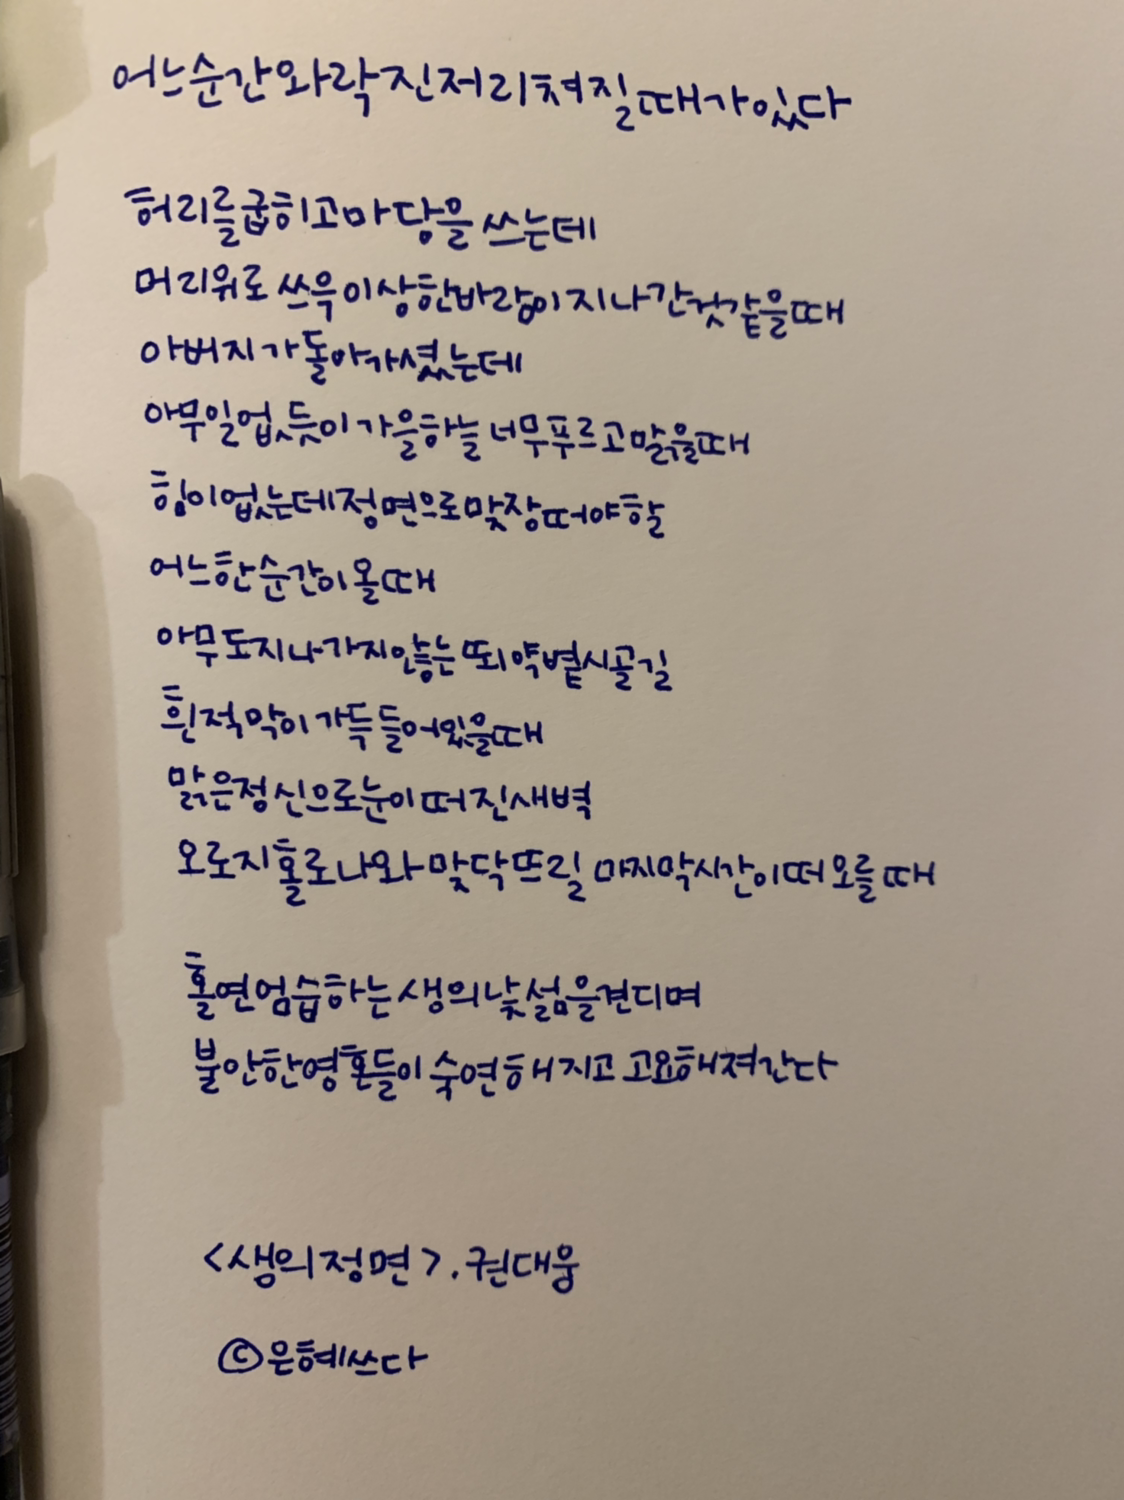 어느 순간 와락 진저리쳐질 때가 있다
허리를 굽히고 마당을 쓰는데
머리 위로 쓰윽 이상한 바람이 지나간 것 같을 때
아버지가 돌아가셨는데
아무 일 없듯이 가을하늘 너무 푸르고 맑을 때
힘이 없는데 정면으로 맞장떠야 할
어느 한 순간이 올 때
아무도 지나가지 않는 뙤약볕 시골길
흰 적막이 가득 들어있을 때
맑은 정신으로 눈이 떠진 새벽
오로지 홀로 나와 맞닥뜨릴 마지막 시간이 떠오를 때
홀연 엄습하는 생의 낯섦을 견디며
불안한 영혼들이 숙연해지고 고요해져 간다
<생의 정면>. 권대웅
©은혜쓰다